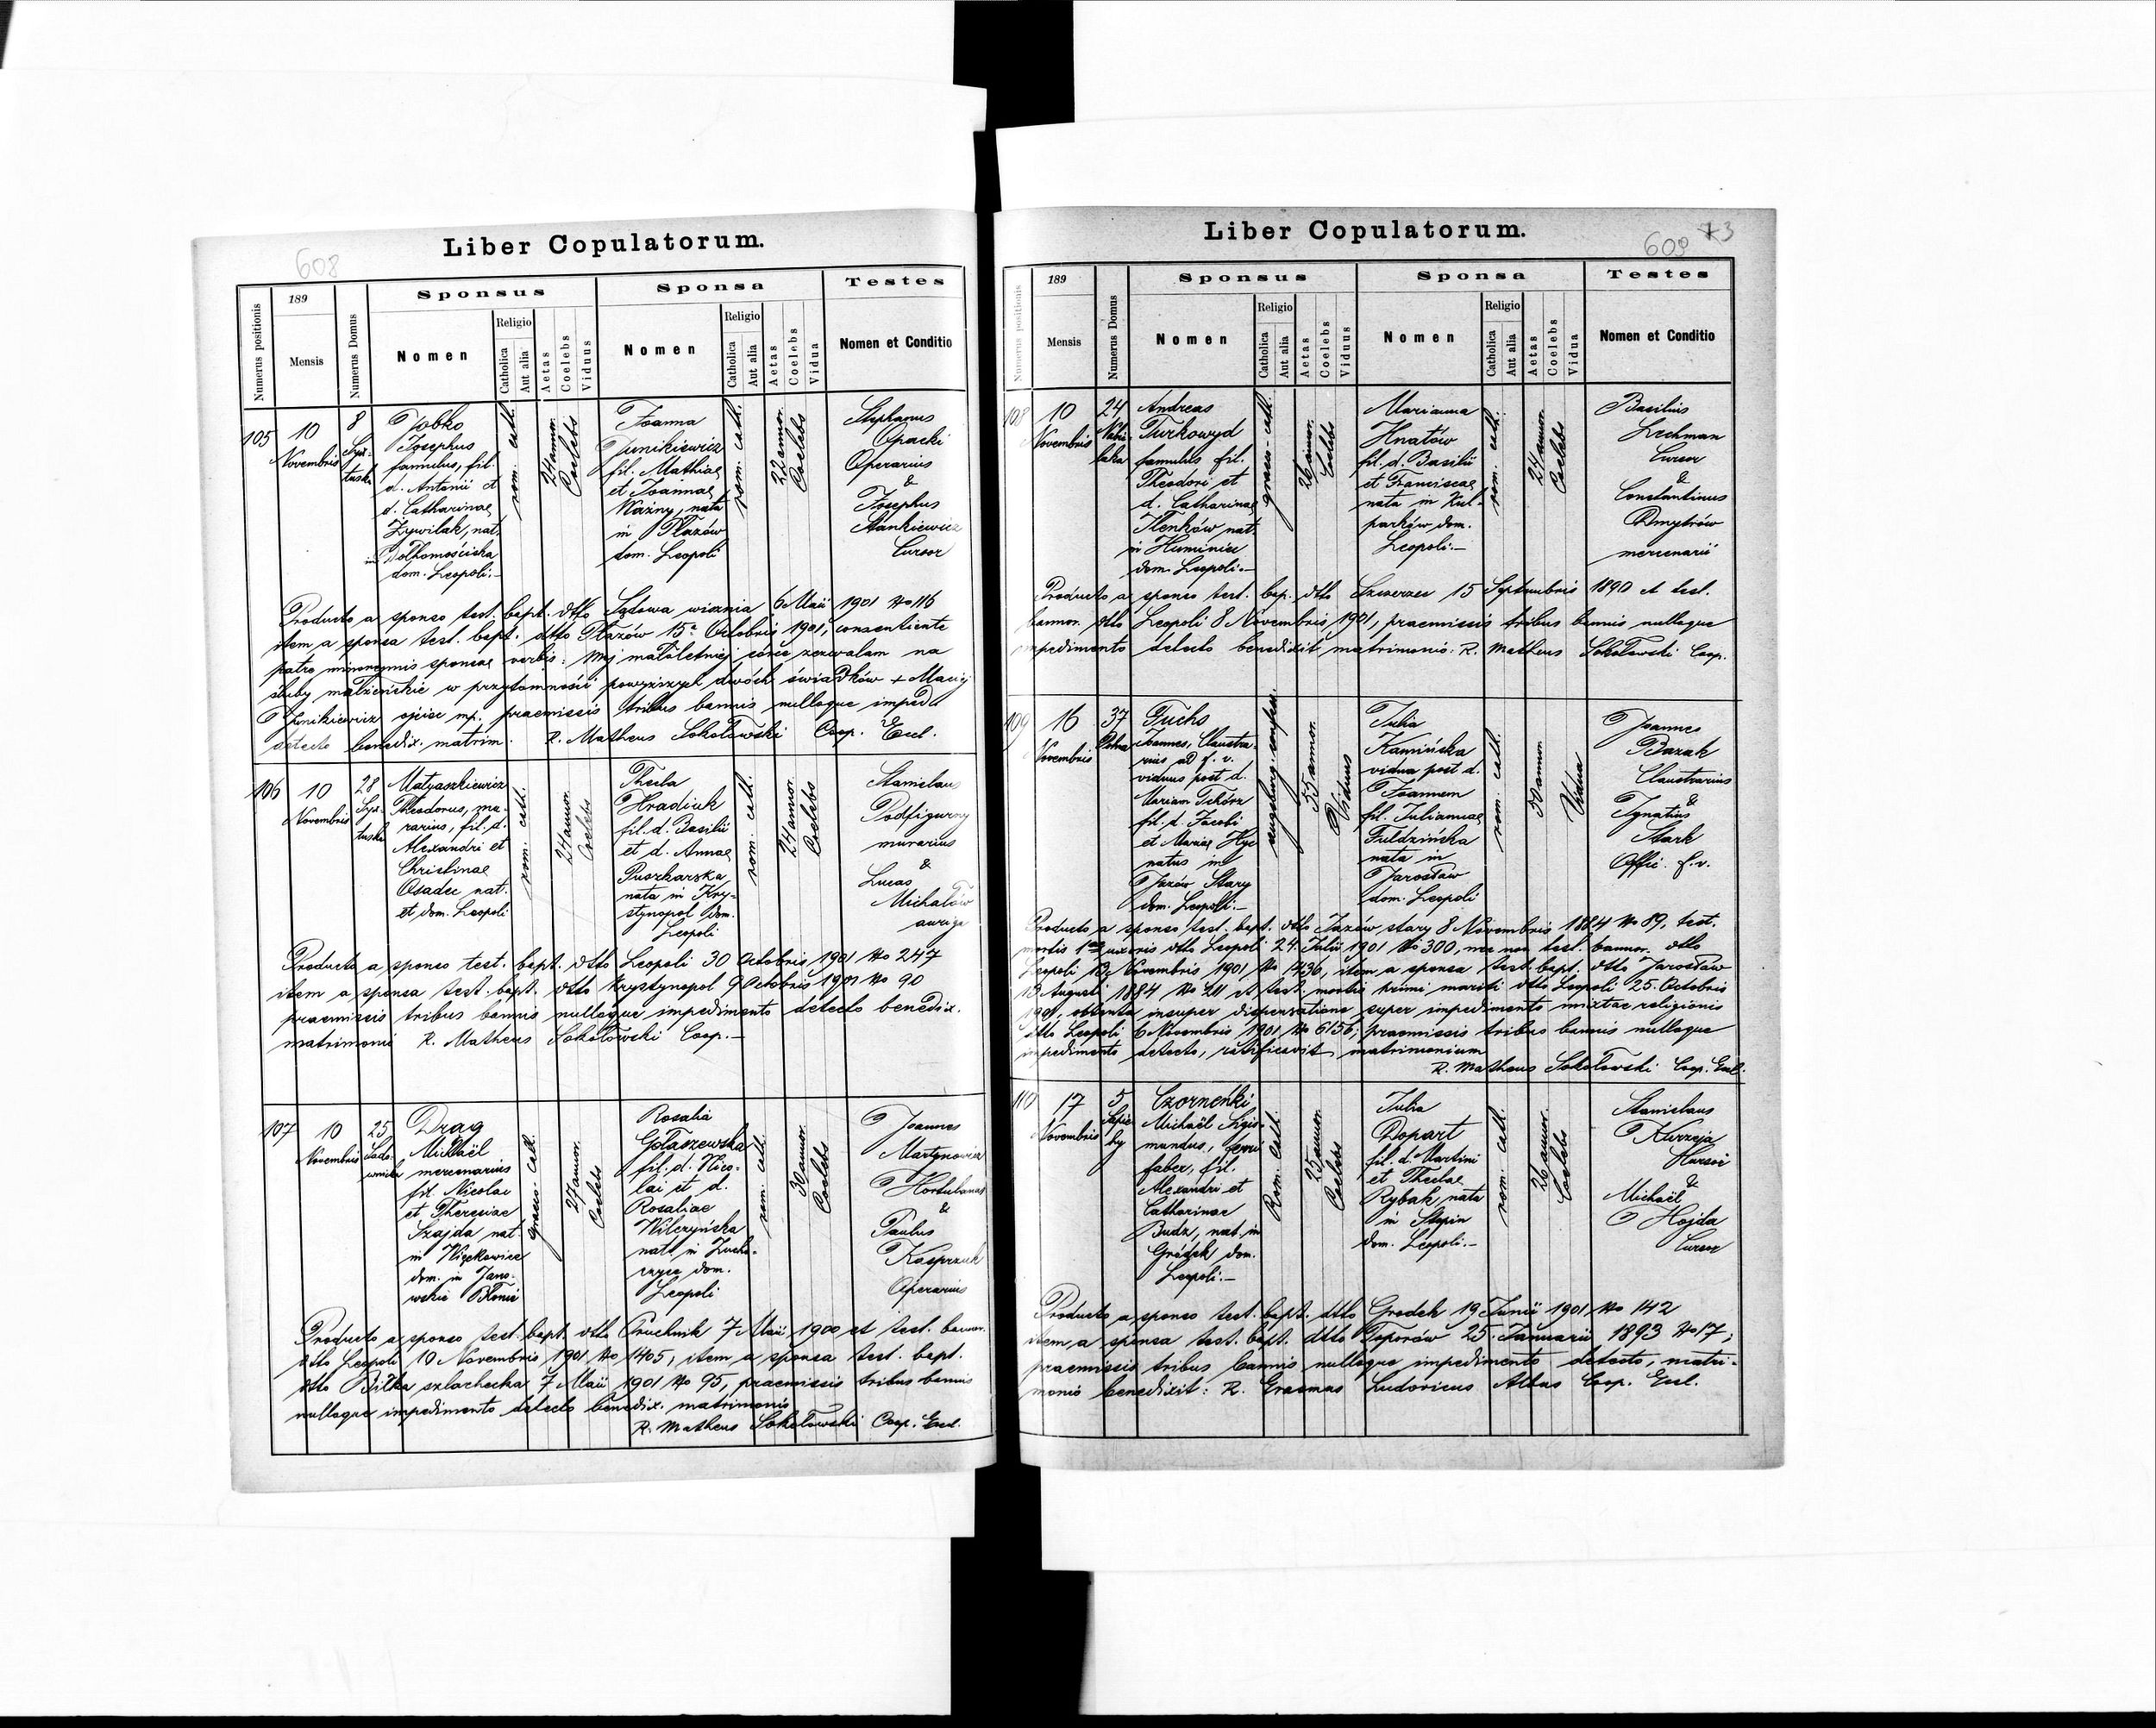 608
Liber Copulatorum.
Numerus positionis
189
Mensis
Numerus Domus
Sponsus
Nomen
Religio
Catholica
Aut alia
Aetas
Coelebs
Viduus
Sponsa
Nomen
Religio
Catholica
Aut alia
Aetas
Coelebs
Vidua
Testes
Nomen et Conditio
105
10
Novembris
8
Syx-
tuska
Jobko
Josephus
famulus, fil.
d. Antonii et
d. Catharinae
Zywilak, nat.
in
dom. Leopoli.-
rom. cath.
24 annor.
Coelebs
Joanna
Dunikiewicz
fil. Mathiae
et Joannae
Ważny, nata
in Płazów
dom. Leopoli
rom. cath.
22 annor.
Coelebs
Stephanus
Opacki
Operarius
&
Josephus
Stankiewicz
Cursor
Producto a sponso test. bapt. dtto Sądowa wisznia 6 Maii 1901 No 116
item a sponsa test. bapt. dtto Płazów 15a Octobris 1901, consentiente
patre minorennis sponsae verbis: Mej małoletniej córce zezwalam na
śluby małżeńskie w przytomności powyższych dwóch świadków + Maciej
Dunikiewicz ojciec mp. praemissis tribus bannis nulloque imped
detecto benedix. matrim. R. Matheus Sokołowski Coop. Eccl.
106
10
Novembris
28
Syx-
tuska
Matyaszkiewicz
Theodorus, mu-
rarius, fil. d.
Alexandri et
Christinae
Osadec nat.
et dom. Leopoli
rom. cath.
24 annor.
Coelebs
Thecla
Hradiuk
fil. d. Basilii
et d. Annae
Puszkarska
nata in Kry-
stynopol dom.
Leopoli
rom. cath.
24 annor.
Coelebs
Stanislaus
Podfigurny
murarius
&
Lucas
Michałów
auriga
Producto a sponso test. bapt. dtto Leopoli 30 Octobris 1901 No 247
item a sponsa test. bapt. dtto Krystynopol 9 Octobris 1901 No 90
praemissis tribus bannis nulloque impedimento detecto benedix.
matrimonio R. Matheus Sokołowski Coop.-
107
10
Novembris
25
Sado-
wnicka
Drag
Michaël
mercenarius
fil. Nicolai
et Theresiae
Szajda nat.
in Więckowice
dom. in Jano-
wskie Błonie
graeco-cath.
27 annor.
Coelebs
Rosalia
Gołaszewska
fil. d. Nico-
lai et d.
Rosaliae
Wilczyńska
nata in Zucho-
rzyce dom.
Leopoli
rom. cath.
30 annor.
Coelebs
Joannes
Martynowicz
Hortulanus
&
Paulus
Kasprzak
Operarius
Producto a sponso test. bapt. dtto Pruchnik 7 Maii 1900 et test. bannor.
dtto Leopoli 10 Novembris 1901 No 1405, item a sponsa test. bapt.
dtto Biłka szlachecka 7 Maii 1901 No 95, praemissis tribus bannis
nulloque impedimento detecto benedix. matrimonio
R. Matheus Sokołowski Coop. Eccl.
609 73
Liber Copulatorum.
Numerus positionis
189
Mensis
Numerus Domus
Sponsus
Nomen
Religio
Catholica
Aut alia
Aetas
Coelebs
Viduus
Sponsa
Nomen
Religio
Catholica
Aut alia
Aetas
Coelebs
Vidua
Testes
Nomen et Conditio
108
10
Novembris
24
Andreas
Turkowyd
famulus fil.
Theodori et
d. Catharinae
Ilenków nat.
in Huminiec
dom. Leopoli.-
graeco-cath.
26 annor.
Coelebs
Marianna
Hnatów
fil. d. Basilii
et Franciscae
nata in Kul-
parków dom.
Leopoli.-
rom. cath.
24 annor.
Coelebs
Basilius
Lechman
Cursor
&
Constantinus
Dmytrów
mercenarii
Producto a sponso test. bap. dtto Szczerzec 15 Septembris 1890 et test.
bannor. dtto Leopoli 8 Novembris 1901, praemissis tribus bannis nulloque
impedimento detecto benedixit matrimonio: R. Matheus Sokołowski Coop.
109
16
Novembris
37
Petra
Fuchs
Joannes, Claustra-
rius ad f. v.
viduus post d.
Mariam Tchórz
fil. d. Jacobi
et Mariae Hye
natus in
Jazów Stary
dom. Leopoli.-
augsburg. confess.
55 annor.
Viduus
Julia
Kamińska
vidua post d.
Joannem
fil. Juliannae
Fuldzińska
nata in
Jarosław
dom. Leopoli
rom. cath.
50 annor.
Vidua
Joannes
Bazak
Claustrarius
&
Ignatius
Stark
Offic. f. v.
Producto a sponso test. bapt. dtto Jazów stary 8 Novembris 1884 No 89, test.
mortis 1mae uxoris dtto Leopoli 24 Julii 1901 No 300, nec non test. bannor. dtto
Leopoli 13 Novembris 1901 No 1436, item a sponsa test. bapt. dtto Jarosław
13 Augusti 1884 No 211 et test. mortis primi mariti dtto Leopoli 25 Octobris
1901, obtenta insuper dispensatione super impedimento mixtae religionis
dtto Leopoli 6 Novembris 1901 No 6156, praemissis tribus bannis nulloque
impedimento detecto, ratificavit matrimonium
R. Matheus Sokołowski Coop. Eccl.
110
17
Novembris
5
Sapie-
hy
Czornenki
Michaël Sigis-
mundus, ferri
faber, fil.
Alexandri et
Catharinae
Budz, nat. in
Gródek dom.
Leopoli.-
Rom. cath.
25 annor.
Coelebs
Julia
Dopart
fil. d. Martini
et Theclae
Rybak nata
in Stopin
dom. Leopoli.-
rom. cath.
26 annor.
Coelebs
Stanislaus
Kurzeja
&
Michaël
Hojda
Cursor
Producto a sponso test. bapt. dtto Grodek 19 Junii 1901 No 142
item a sponsa test. bapt. dtto Toporów 25. Januarii 1893 No 17;
praemissis tribus bannis nulloque impedimento detecto, matri-
monio benedixit: R. Erasmus Ludovicus Albus Coop. Eccl.